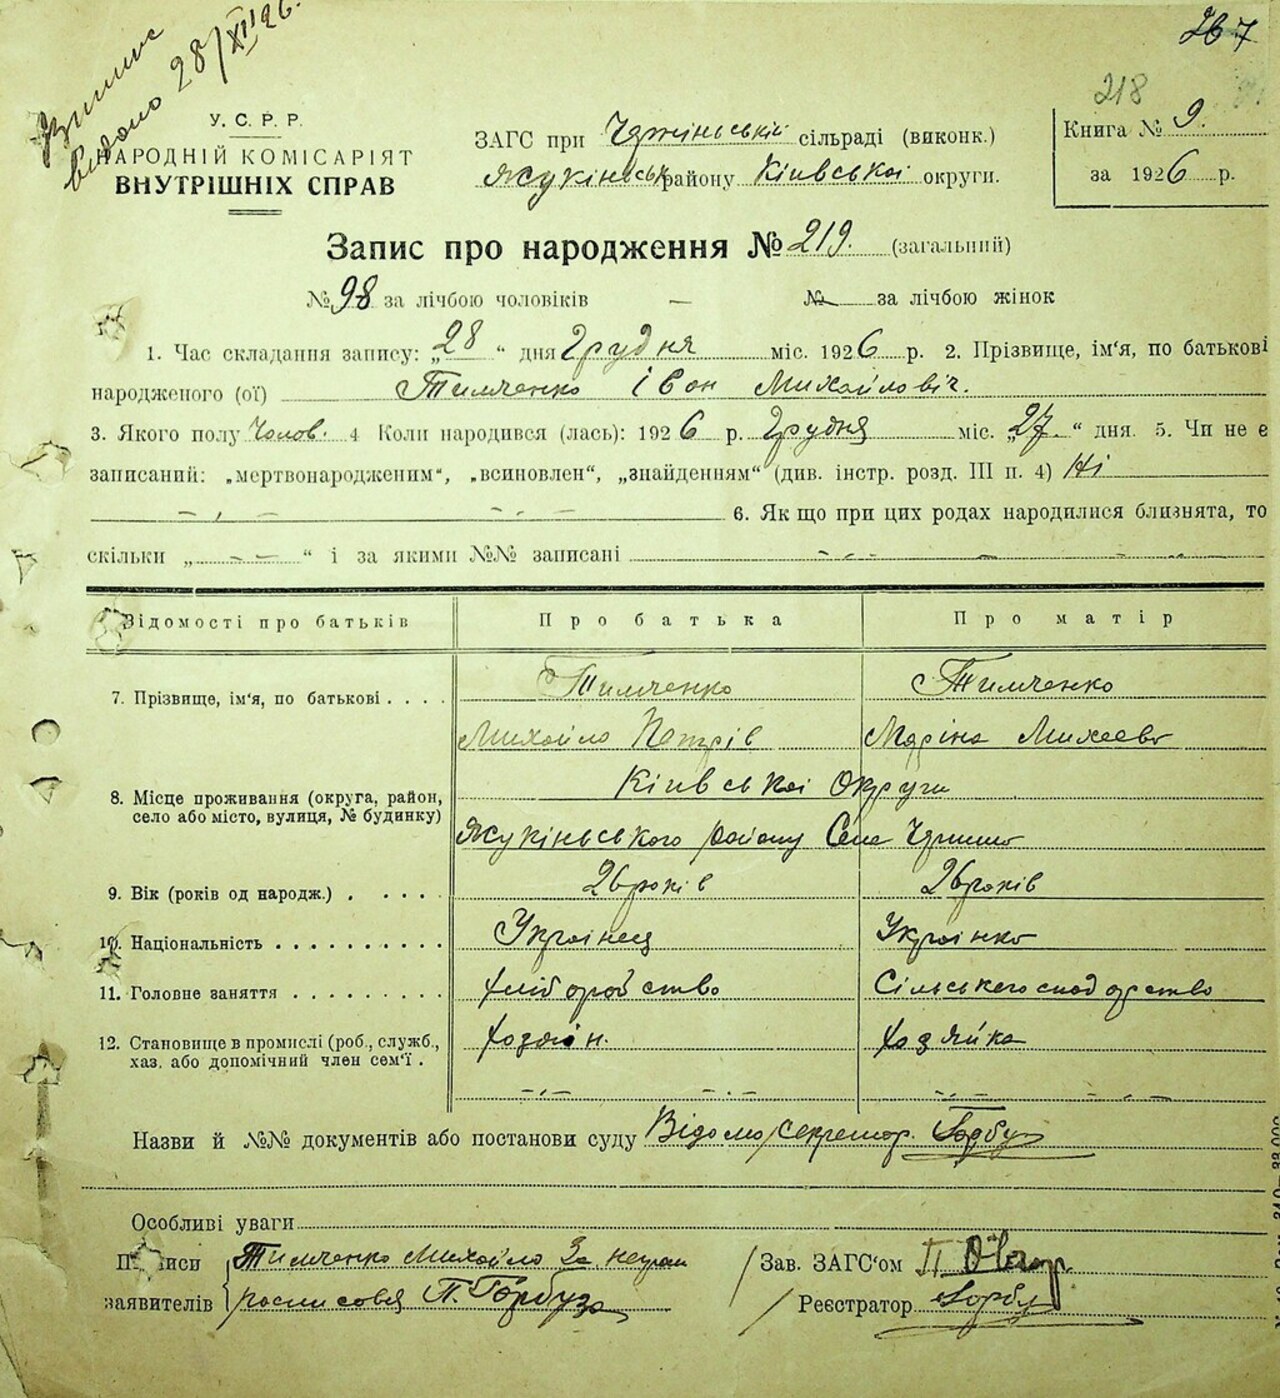 Випис
видано 28/XII 26.
267
218
У. С. Р. Р.
НАРОДНІЙ КОМІСАРІЯТ
ВНУТРІШНІХ СПРАВ
ЗАГС при сільраді (виконк.)
району Київської округи.
Книга № 9.
за 1926 р.
Запис про народження № 219. (загальний)
№ 98 за лічбою чоловіків — № — за лічбою жінок
1. Час складання запису: „28“ дня Грудня міс. 1926 р. 2. Прізвище, ім'я, по батькові
народженого (ої) Тимченко Іван Михайловіч.
3. Якого полу Чолов. 4 Коли народився (лась): 1926 р. Грудня міс. „27.“ дня. 5. Чи не є
записаний: „мертвонародженим“, „всиновлен“, „знайденням“ (див. інстр. розд. III п. 4) Ні
6. Як що при цих родах народилися близнята, то
скільки „ “ і за якими №№ записані
Відомості про батьків Про батька Про матір
7. Прізвище, ім'я, по батькові . . . . Тимченко Тимченко
Михайло Петрів Маріна Михеева
8. Місце проживання (округа, район, село або місто, вулиця, № будинку) Київської Округи
району Село
9. Вік (років од народж.) . . . . . 26 років 26 років
10. Національність . . . . . . . . . . Українец Українка
11. Головне заняття . . . . . . . . . Хліборобство Сільськегосподарство
12. Становище в промислі (роб., служб., хаз. або допомічний член сем'ї . Хозяін. Хозяйка
Назви й №№ документів або постанови суду Відомо/секретар. Горбуз
Особливі уваги
Підписи Тимченко Михайло За неграм
заявителів росписовся П. Горбуза
Зав. ЗАГС'ом
Реєстратор Горбуз